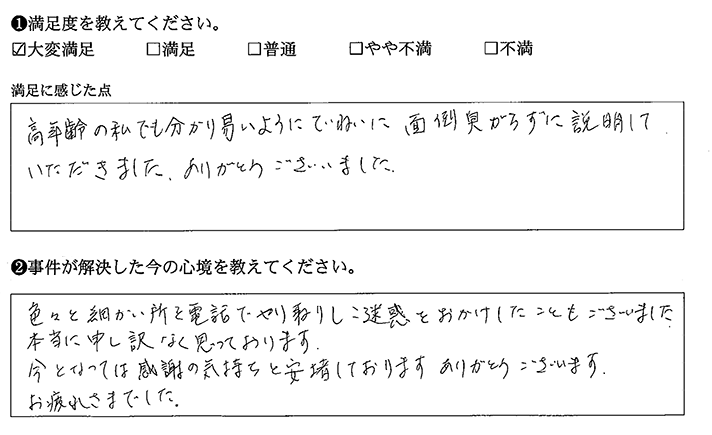 ❶満足度を教えてください。
☑大変満足 □満足 □普通 □やや不満 □不満
満足に感じた点
高年齢の私でも分かり易いようにていねいに 面倒臭がらずに説明して
いただきました、ありがとうございました。
❷事件が解決した今の心境を教えてください。
色々と細かい所を電話でやり取りしご迷惑をおかけしたこともございました
本当に申し訳なく思っております。
今となっては感謝の気持ちと安堵しております ありがとうございます。
お疲れさまでした。